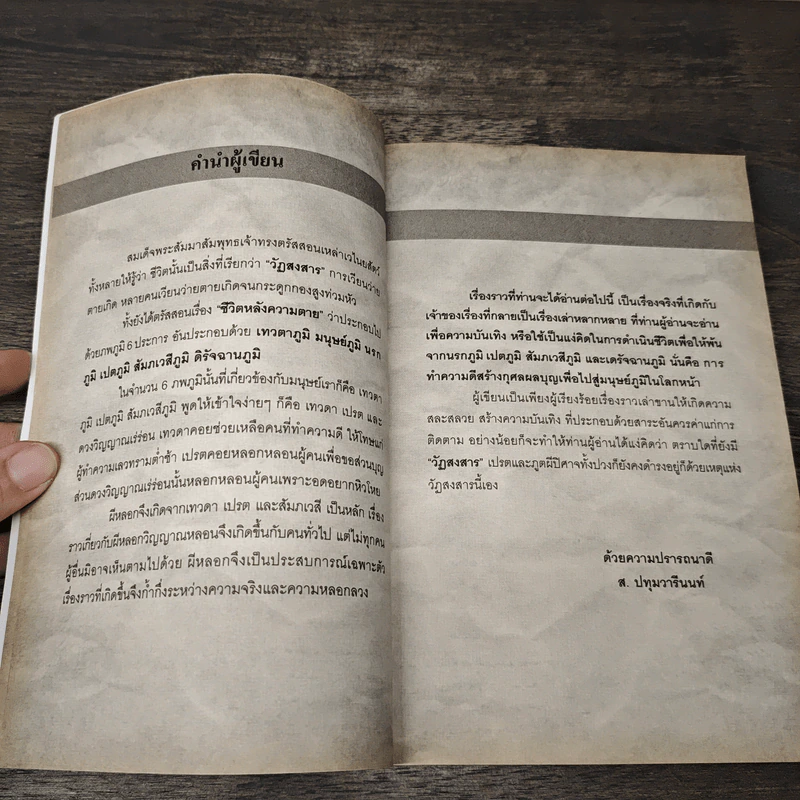 คำนำผู้เขียน
สมเด็จพระสัมมาสัมพุทธเจ้าทรงตรัสสอนเหล่าเวไนยสัตว์
ทั้งหลายให้รู้ว่า ชีวิตนั้นเป็นสิ่งที่เรียกว่า "วัฏสงสาร" การเวียนว่าย
ตายเกิด หลายคนเวียนว่ายตายเกิดจนกระดูกกองสูงท่วมหัว
ทั้งยังได้ตรัสสอนเรื่อง "ชีวิตหลังความตาย" ว่าประกอบไป
ด้วยภพภูมิ 6 ประการ อันประกอบด้วย เทวตาภูมิ มนุษย์ภูมิ นรก
ภูมิ เปตภูมิ สัมภเวสีภูมิ ดิรัจฉานภูมิ
ในจำนวน 6 ภพภูมินั้นที่เกี่ยวข้องกับมนุษย์เราก็คือ เทวดา
ภูมิ เปตภูมิ สัมภเวสีภูมิ พูดให้เข้าใจง่ายๆ ก็คือ เทวดา เปรต และ
ดวงวิญญาณเร่ร่อน เทวดาคอยช่วยเหลือคนที่ทำความดี ให้โทษแก่
ผู้ทำความเลวทรามต่ำช้า เปรตคอยหลอกหลอนผู้คนเพื่อขอส่วนบุญ
ส่วนดวงวิญญาณเร่ร่อนนั้นหลอกหลอนผู้คนเพราะอดอยากหิวโหย
ผีหลอกจึงเกิดจากเทวดา เปรต และสัมภเวสี เป็นหลัก เรื่อง
ราวเกี่ยวกับผีหลอกวิญญาณหลอนจึงเกิดขึ้นกับคนทั่วไป แต่ไม่ทุกคน
ผู้อื่นมิอาจเห็นตามไปด้วย ผีหลอกจึงเป็นประสบการณ์เฉพาะตัว
เรื่องราวที่เกิดขึ้นจึงก้ำกึ่งระหว่างความจริงและความหลอกลวง
เรื่องราวที่ท่านจะได้อ่านต่อไปนี้ เป็นเรื่องจริงที่เกิดกับ
เจ้าของเรื่องที่กลายเป็นเรื่องเล่าหลากหลาย ที่ท่านผู้อ่านจะอ่าน
เพื่อความบันเทิง หรือใช้เป็นแง่คิดในการดำเนินชีวิตเพื่อให้พ้น
จากนรกภูมิ เปตภูมิ สัมภเวสีภูมิ และเดรัจฉานภูมิ นั่นคือ การ
ทำความดีสร้างกุศลผลบุญเพื่อไปสู่มนุษย์ภูมิในโลกหน้า
ผู้เขียนเป็นเพียงผู้เรียงร้อยเรื่องราวเล่าขานให้เกิดความ
สละสลวย สร้างความบันเทิง ที่ประกอบด้วยสาระอันควรค่าแก่การ
ติดตาม อย่างน้อยก็จะทำให้ท่านผู้อ่านได้แง่คิดว่า ตราบใดที่ยังมี
"วัฏสงสาร" เปรตและภูตผีปีศาจทั้งปวงก็ยังคงดำรงอยู่ก็ด้วยเหตุแห่ง
วัฏสงสารนี้เอง
ด้วยความปรารถนาดี
ส. ปทุมวารีนนท์